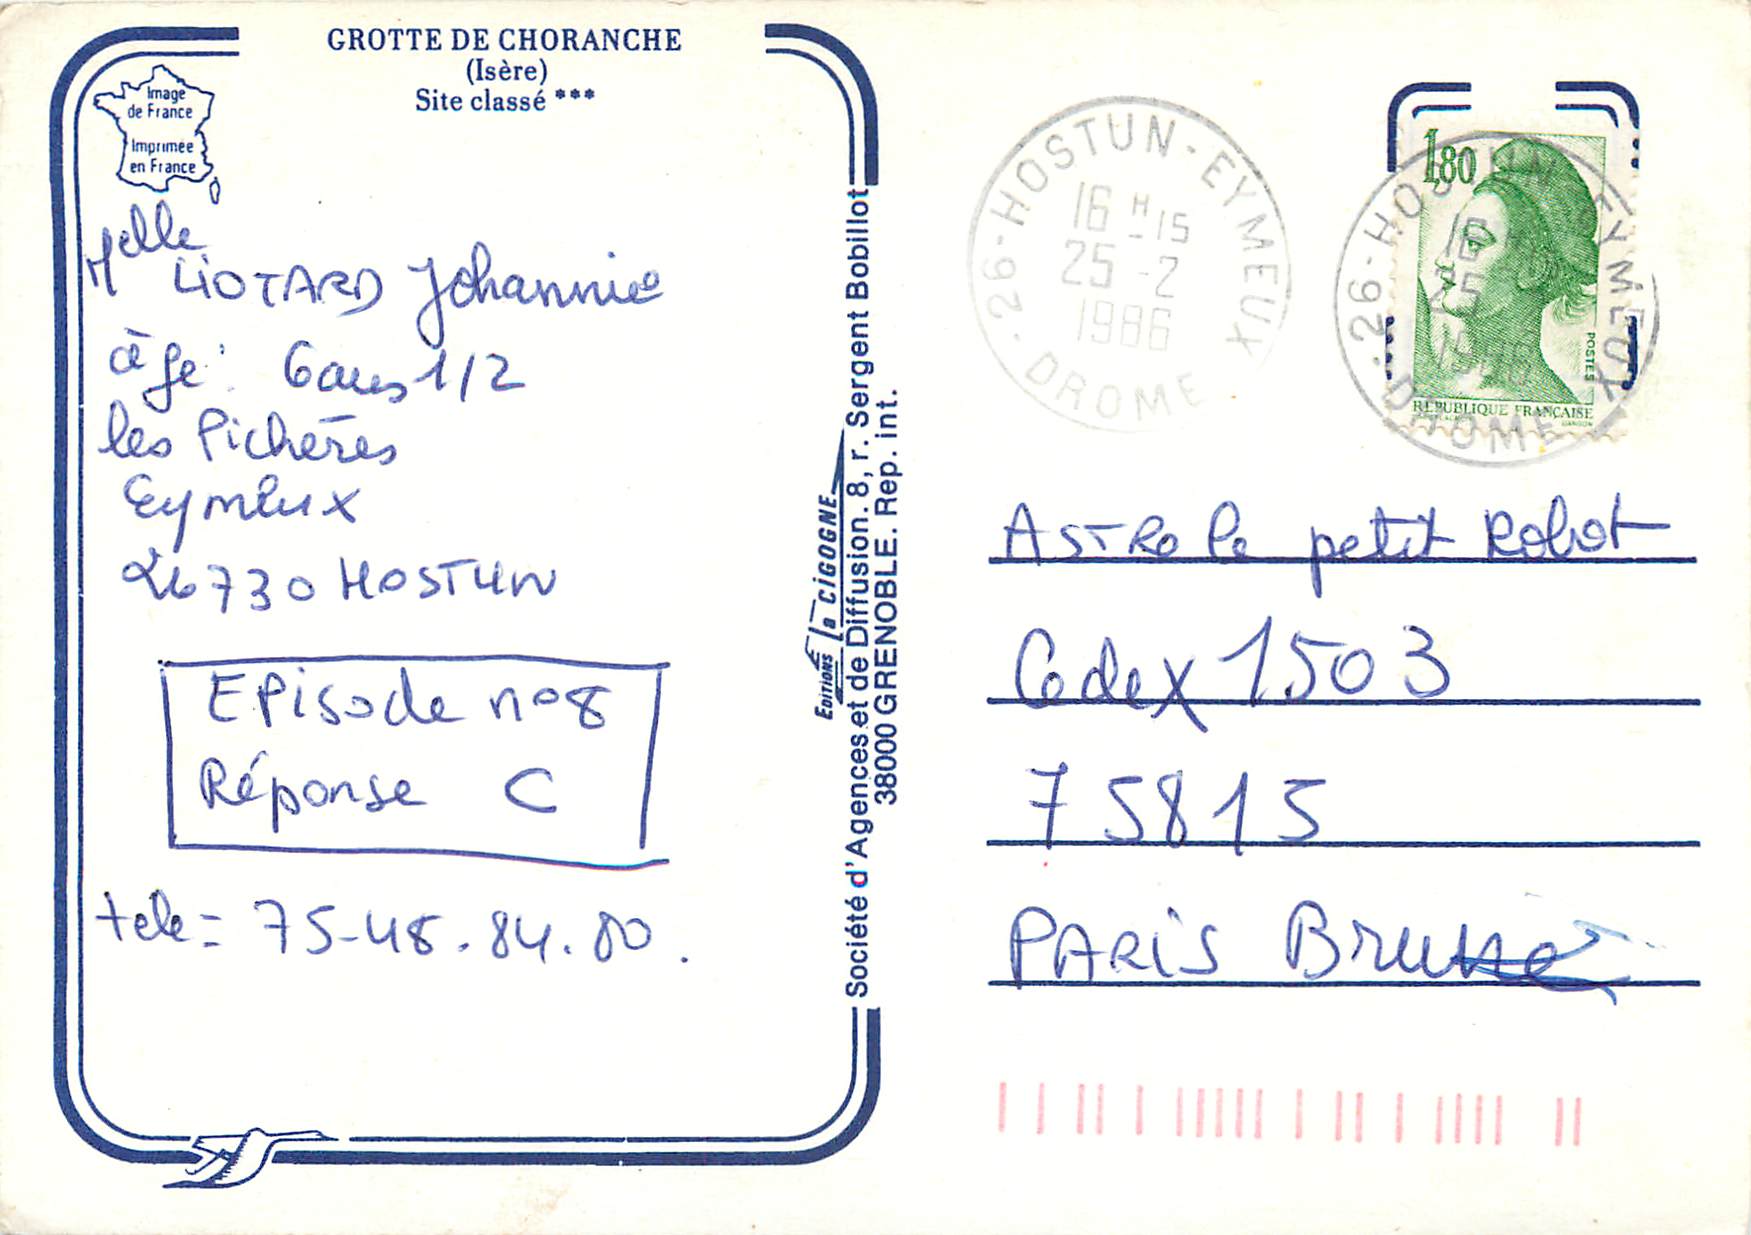 GROTTE DE CHORANCHE
(Isère)
Site classé ***
Image
de France
Imprimée
en France
Melle
LIOTARD Johannie
âge : 6 ans 1/2
les Pichères
Eymeux
26730 HOSTUN
EPisode n°8
Réponse C
tele = 75-48.84.80.
Editions la CIGOGNE
Société d'Agences et de Diffusion. 8, r. Sergent Bobillot
38000 GRENOBLE. Rep. int.
26-HOSTUN-EYMEUX
16 H 15
25 -2
1986
DROME
1,80
POSTES
REPUBLIQUE FRANÇAISE
GANDON
26-HOSTUN-EYMEUX
16
25
DROME
ASTRO le petit Robot
Cedex 1503
75815
PARIS Brune